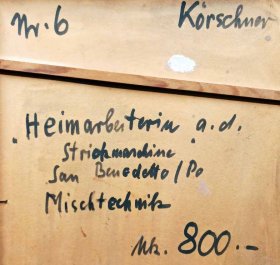 Nr. 6 Körschner
"Heimarbeiterin a. d.
Strickmaschine
San Benedetto/Po
Mischtechnik
Mk. 800.-